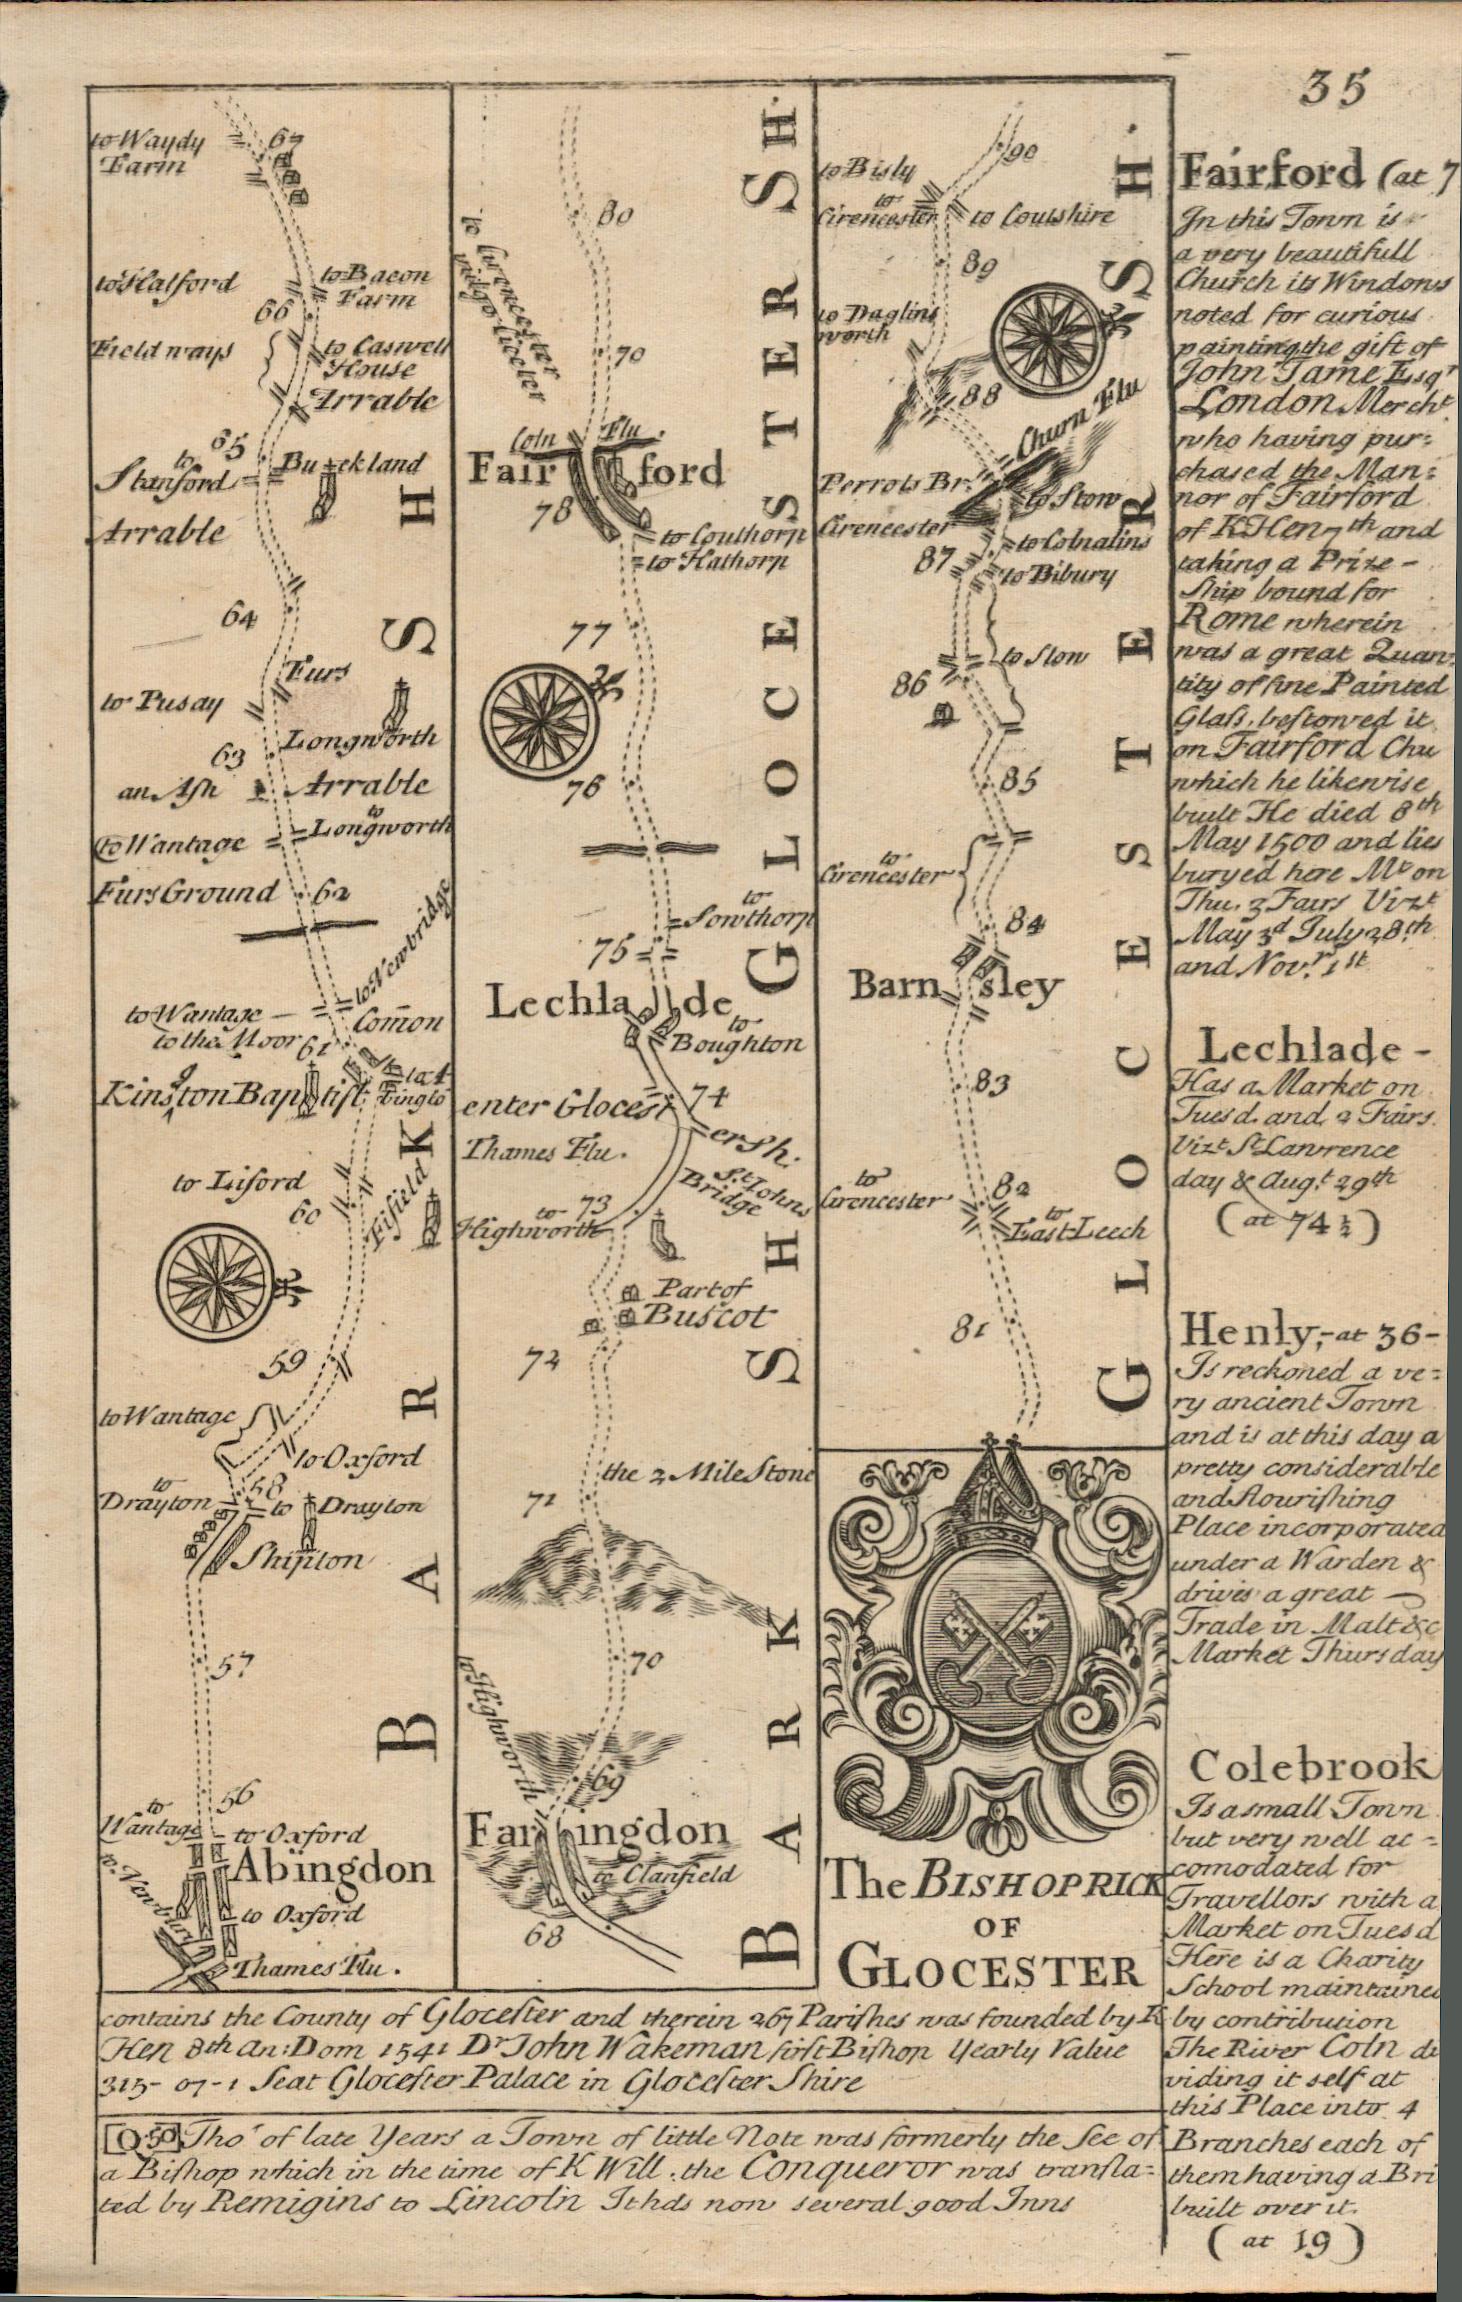 35
to Waydy
Farm
67
to Halford
to Bacon
Farm
66
Field ways
to Caswell
House
Arrable
65
to
Stanford
Buckland
Arrable
64
Furs
to Pusay
63
Longworth
an Ash
Arrable
to Wantage
to
Longworth
Furs Ground
62
to Newbridge
to Wantage
to the Moor
Com̄on
61
Kingston Baptist
to Liford
60
Fifield
59
to Wantage
to Oxford
58
to
Drayton
to Drayton
Shipton
57
56
to
Wantage
to Oxford
Abingdon
to Newbury
to Oxford
Thames Flu.
BARKSH
80
to Cirencester
79
Coln Flu.
Fairford
78
to Couthorp
to Hathorp
77
76
to
Sowthorp
75
Lechlade
to
Boughton
74
enter Glocestersh.
Thames Flu.
St Johns
Bridge
73
to
Highworth
Part of
Buscot
72
the 2 Mile Stone
71
70
to Highworth
69
Faringdon
to Clanfield
68
GLOCESTERSH.
BARKSH
90
to Bisly
to
Cirencester
to Coulshire
89
to Daglins
worth
88
Churn Flu
Perrots Br.
to Stow
Cirencester
to Colnalins
87
to Bibury
to Slow
86
85
to
Cirencester
84
Barnsley
83
to
Cirencester
82
to
East Leech
81
GLOCESTERSH.
The BISHOPRICK
OF
GLOCESTER
contains the County of Glocester and therein 267 Parishes was founded by K
Hen 8th An: Dom 1541 Dr John Wakeman first Bishop Yearly Value
315-07-1 Seat Glocester Palace in Glocester Shire
Tho' of late Years a Town of little Note was formerly the See of
a Bishop which in the time of K Will. the Conqueror was transla=
ted by Remigins to Lincoln It hds now several good Inns
Fairford (at 7
In this Town is
a very beautifull
Church its Windows
noted for curious
painting the gift of
John Tame Esqr
London Mercht
who having pur=
chased the Man=
nor of Fairford
of K Hen 7th and
taking a Prize-
Ship bound for
Rome wherein
was a great Quan
tity of fine Painted
Glass, bestowed it
on Fairford Chu
which he likewise
built He died 8th
May 1500 and lies
buryed here Mt on
Thu. 3 Fairs Vizt
May 3d July 28th
and Novr 1st
Lechlade-
Has a Market on
Tuesd. and 2 Fairs.
Vizt St Lawrence
day & Augt 29th
(at 74½)
Henly,-at 36-
Is reckoned a ve=
ry ancient Town
and is at this day a
pretty considerable
and flourishing
Place incorporated
under a Warden &
drives a great
Trade in Malt &c
Market Thursday
Colebrook
Is a small Town
but very well ac=
comodated for
Travellors with a
Market on Tuesd
Here is a Charity
School maintained
by contribution
The River Coln di
viding it self at
this Place into 4
Branches each of
them having a Bri
built over it.
(at 19)